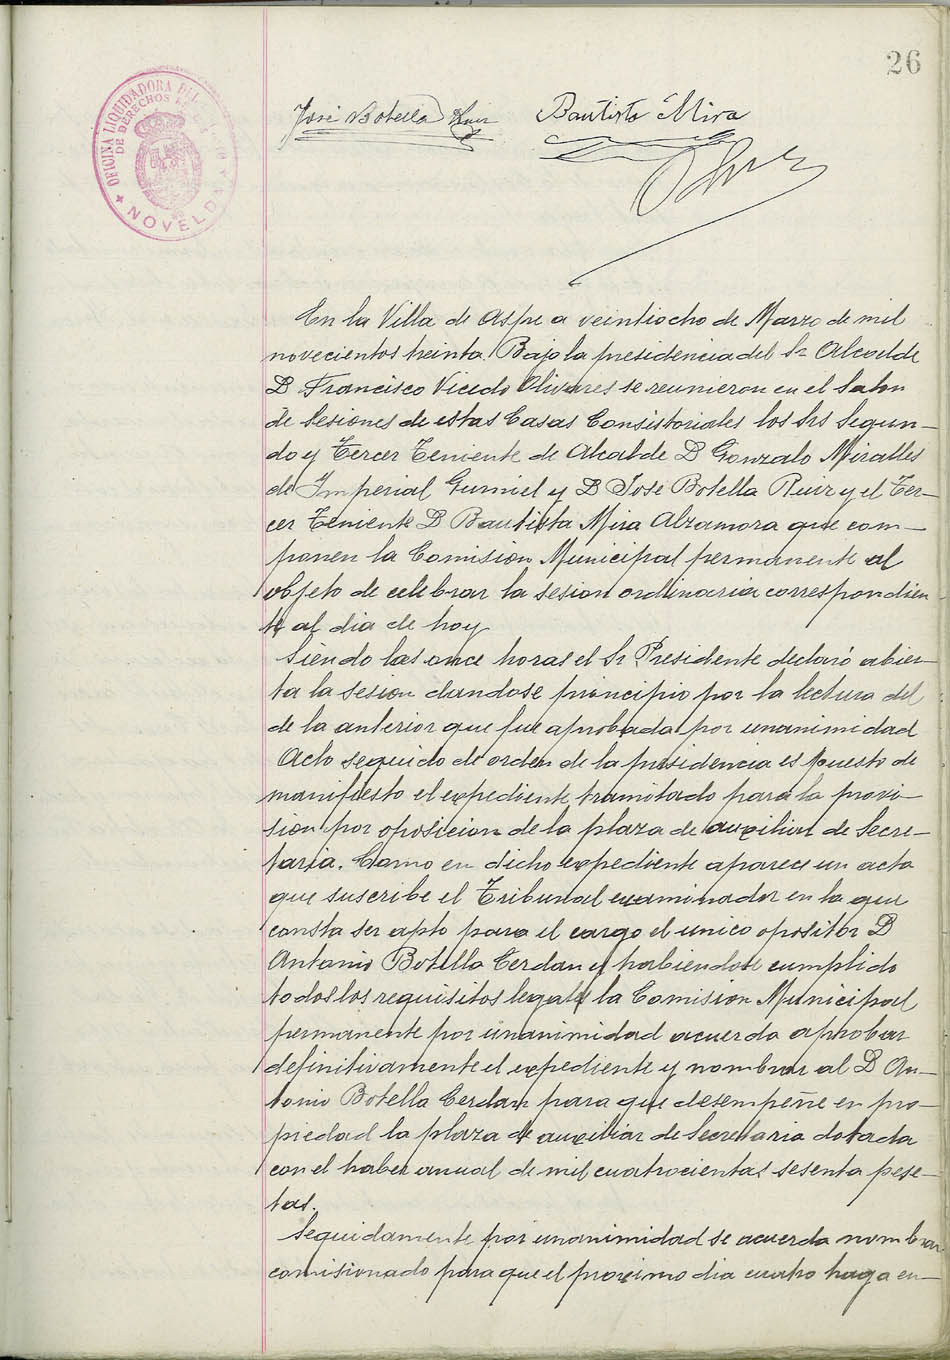 26
OFICINA LIQUIDADORA DEL
DE DERECHOS
NOVELDA
José Botella Ruiz Bautista Mira
En la Villa de Aspe a veintiocho de Marzo de mil
novecientos treinta. Bajo la presidencia del Sr Alcalde
D Francisco Vicedo Olivares se reunieron en el Salon
de Sesiones de estas Casas Consistoriales los Srs Segun-
do y Tercer Teniente de Alcalde D Gonzalo Miralles
de Imperial Gumiel y D José Botella Ruiz y el Ter-
cer Teniente D Bautista Mira Alzamora que com-
ponen la Comision Municipal permanente al
objeto de celebrar la sesion ordinaria correspondien-
te al dia de hoy
Siendo las once horas el Sr Presidente declaró abier-
ta la sesion dandose principio por la lectura del
de la anterior que fue aprobada por unanimidad
Acto seguido de orden de la presidencia es puesto de
manifiesto el expediente tramitado para la provi-
sion por oposicion de la plaza de auxiliar de Secre-
taria. Como en dicho expediente aparece un acta
que suscribe el Tribunal examinador en la que
consta ser apto para el cargo el unico opositor D
Antonio Botella Cerdan y habiendose cumplido
todos los requisitos legales la Comision Municipal
permanente por unanimidad acuerda aprobar
definitivamente el expediente y nombrar al D An-
tonio Botella Cerdan para que desempeñe en pro-
piedad la plaza de auxiliar de Secretaria dotada
con el haber anual de mil cuatrocientas sesenta pese-
tas.
Seguidamente por unanimidad se acuerda nombrar
comisionado para que el proximo dia cuatro haga en-